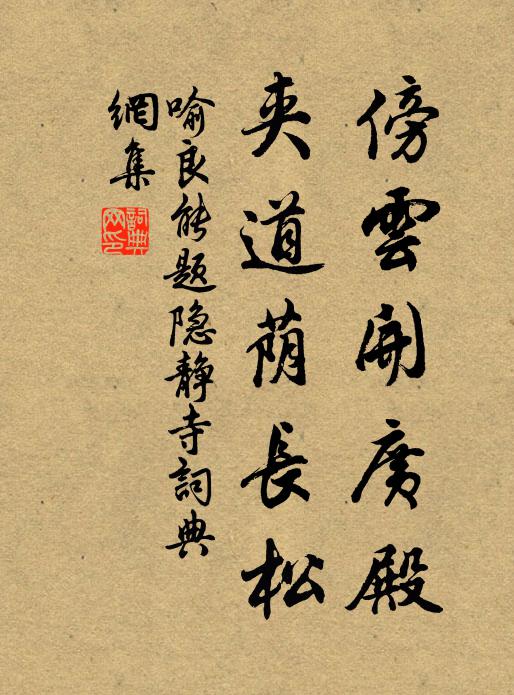 傍雲開廣殿
夾道蔭長松
喻良能題隐靜寺詞典
網集
詞典
网印